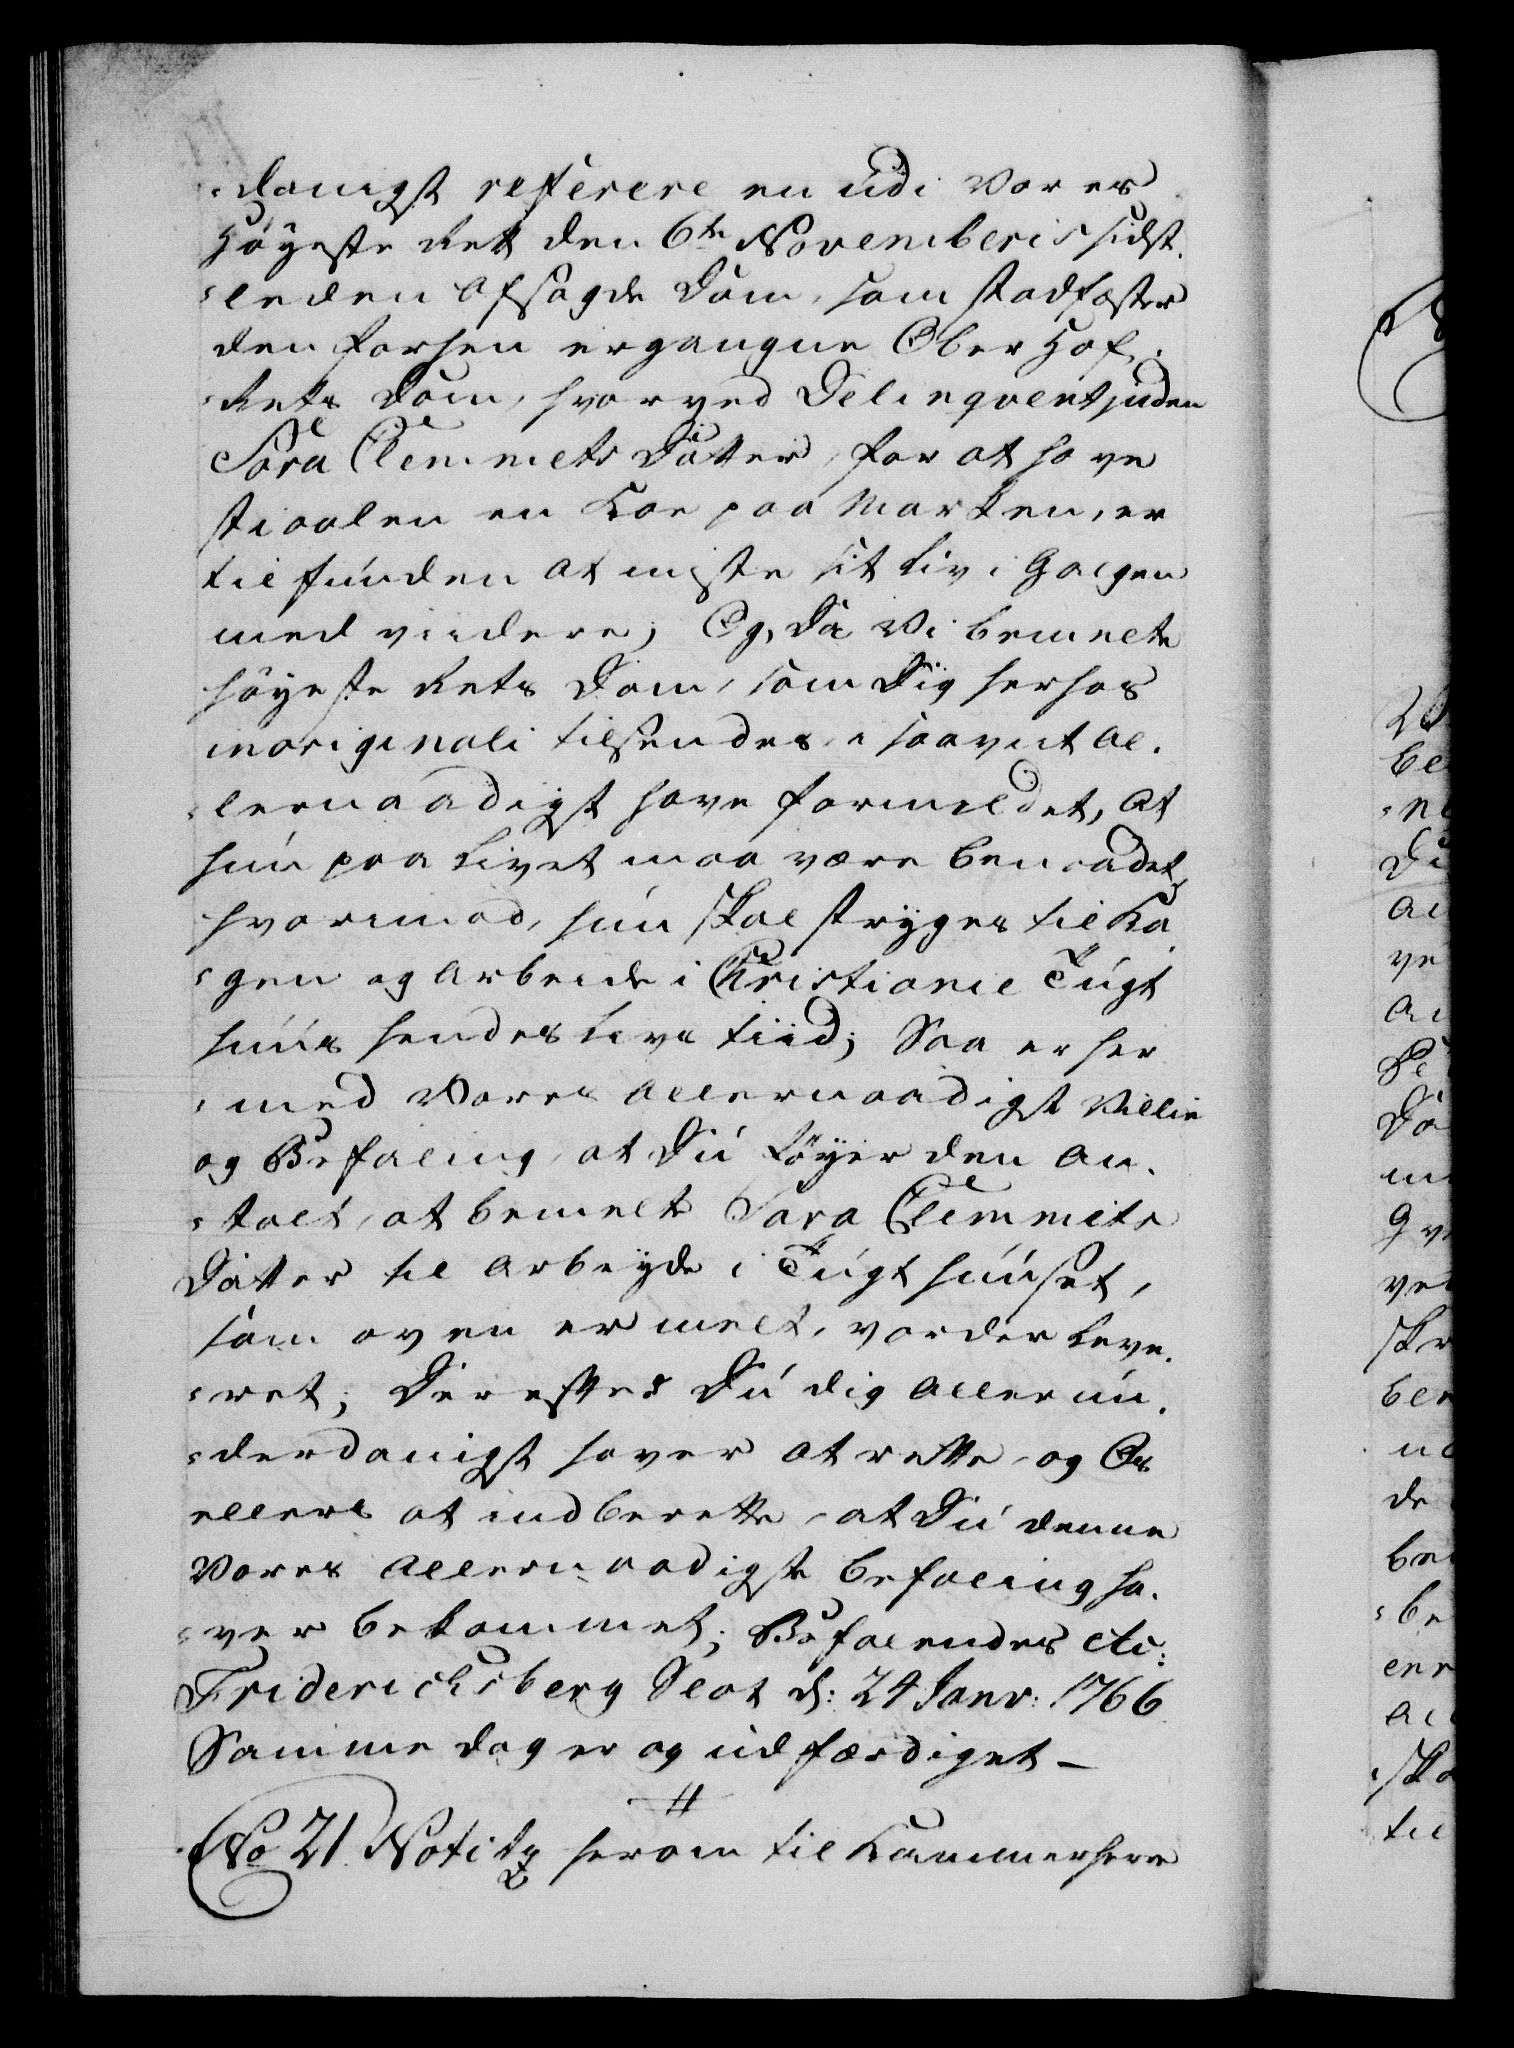 danigst refferere en udi Vores
Høyeste Ret den 6te Novemberis sidst
leden afsagde Dom, som stadfæster
den forhen ergangne Ober Hof
Rets Dom, hvorved Delinqventinden
Sara Clemmets Datter, for at have
stiaalen en Koe paa Marken, er
tilfunden at miste sit Liv i Galgen
med viidere; Og, Da Vi bemelte
Høyeste Rets Dom, som Dig herhos
in originali tilsendes, i saaviit al
lernaadigst have formildet, at
hun paa Livet maa være benaadet,
hvorimod, hun skal stryges til Ka
gen og arbeide i Christianie Tugt
huus hendes Livs tiid; Saa er her
med Vores allernaadigst Villie
og Befaling, at Du føyer den An
stalt, at bemelte Sara Clemmets
Datter til Arbeyde i Tugthuuset,
som oven ermelt, vorder leve
ret; Derefter Du dig allerun
derdanigst haver at rette, og Os
ellers at indberette, at Du denne
Vores allernaadigste befaling ha
ver bekommet; Befalendes etc:
Friderichsberg Slot d: 24 Janv: 1766
Samme dag er og udfærdiget –
No 21. Notitz herom til Kammerherre